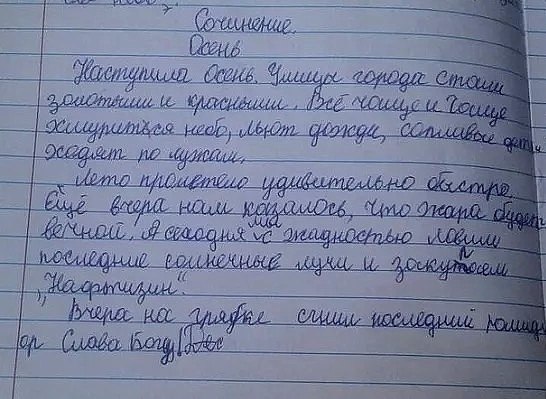 Сочинение.
Осень
Наступила Осень. Улицы города стали
золотыми и красными. Всё чаще и чаще
хмуриться небо, льют дожди, сопливые дети
ходят по лужам.
Лето пролетело удивительно быстро
Ещё вчера нам казалось, что жара будет
вечной. А сегодня мы с жадностью ловим
последние солнечные лучи и закупаем
„Нафтизин".
Вчера на грядке сгнил последний помид
ор Слава Богу